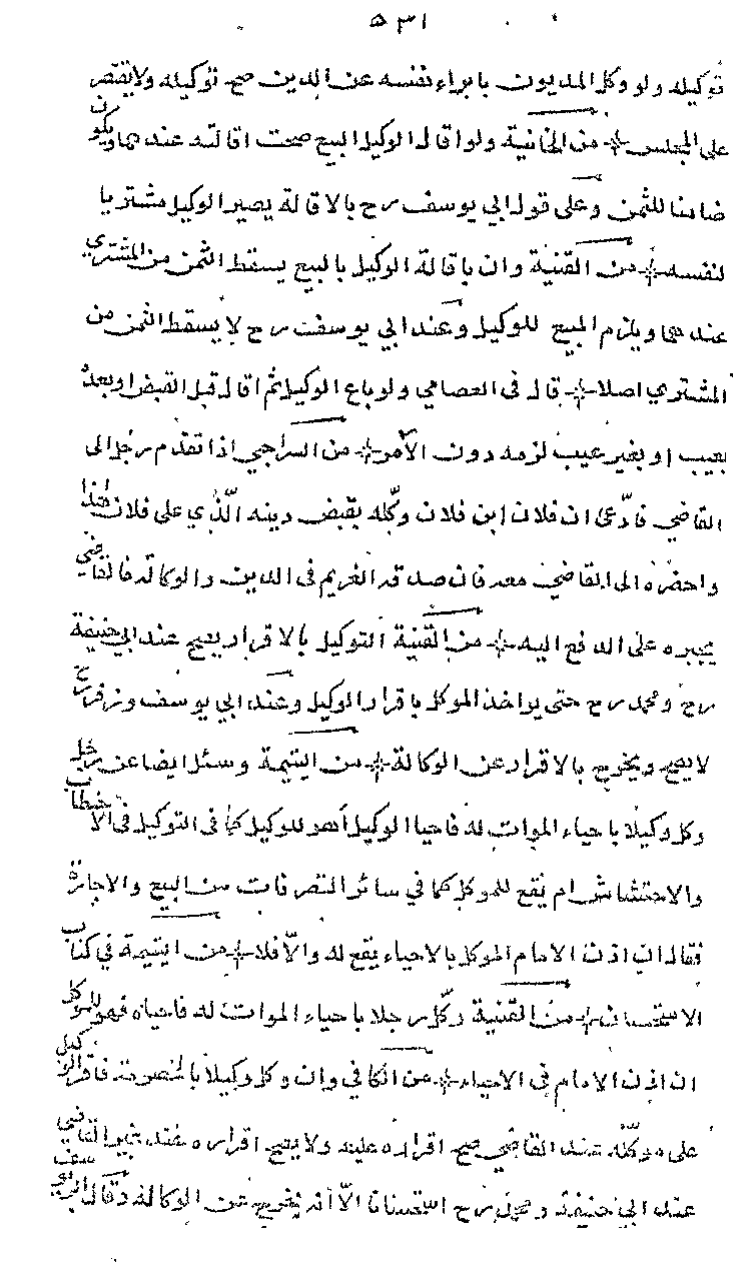 ٥٣١
توكيله ولو وكل المديون بابراء نفسه عن الدين صح توكيله ولا يقتصر
على المجلس من الخانية ولو اقال الوكيل البيع صحت اقالته عندهما ويكون
ضامنا للثمن وعلى قول ابي يوسف رح بالاقالة يصير الوكيل مشتريا
لنفسه من القنية وان باقالة الوكيل بالبيع يسقط الثمن من المشتري
عندهما ويلزم المبيع للوكيل وعند ابي يوسف رح لا يسقط الثمن من
المشتري اصلا قال في العصامي ولو باع الوكيل ثم اقال قبل القبض او بعده
بعيب او بغير عيب لزمه دون الآمر من السراجي اذا تقدم رجل الى
القاضي فادّعى ان فلان ابن فلان وكّله بقبض دينه الّذي على فلان هذا
واحضره الى القاضي معه فان صدقه الغريم في الدين والوكالة فالقاضي
يجبره على الدفع اليه من القنية التوكيل بالاقرار يصح عند ابي حنيفة
رح ومحمد رح حتى يواخذ الموكل باقرار الوكيل وعند ابي يوسف وزفر رح
لا يصح ويخرج بالاقرار عن الوكالة من اليتيمة وسئل ايضا عن رجل
وكل وكيلا باحياء الموات له فاحيا الوكيل أهو للوكيل كما في التوكيل في الاحتطاب
والاحتشاش ام يقع للموكل كما في سائر التصرفات من البيع والاجارة
فقال ان اذن الامام الموكل بالاحياء يقع له والّا فلا من اليتيمة في كتاب
الاستحسان من القنية وكّل رجلا باحياء الموات له فاحياه فهو للموكل
ان اذن الامام في الاحياء من الكافي وان وكل وكيلا بالخصومة فاقر الوكيل
على موكّله عند القاضي صح اقراره عليه ولا يصح اقراره عند غير القاضي
عند ابي حنيفة ومحمد رح استحسانا الّا انه يخرج عن الوكالة وقال ابو يوسف